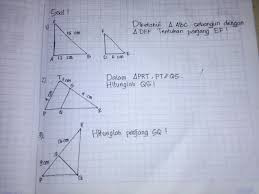 Soal !
1)
15 cm
A 12 cm B
D 6 cm E
Diketahui △ ABC sebangun dengan
△ DEF Tentukan panjang EF !
2)
Dalam △PRT, PT // QS.
Hitunglah QS !
3)
Hitunglah panjang SQ !